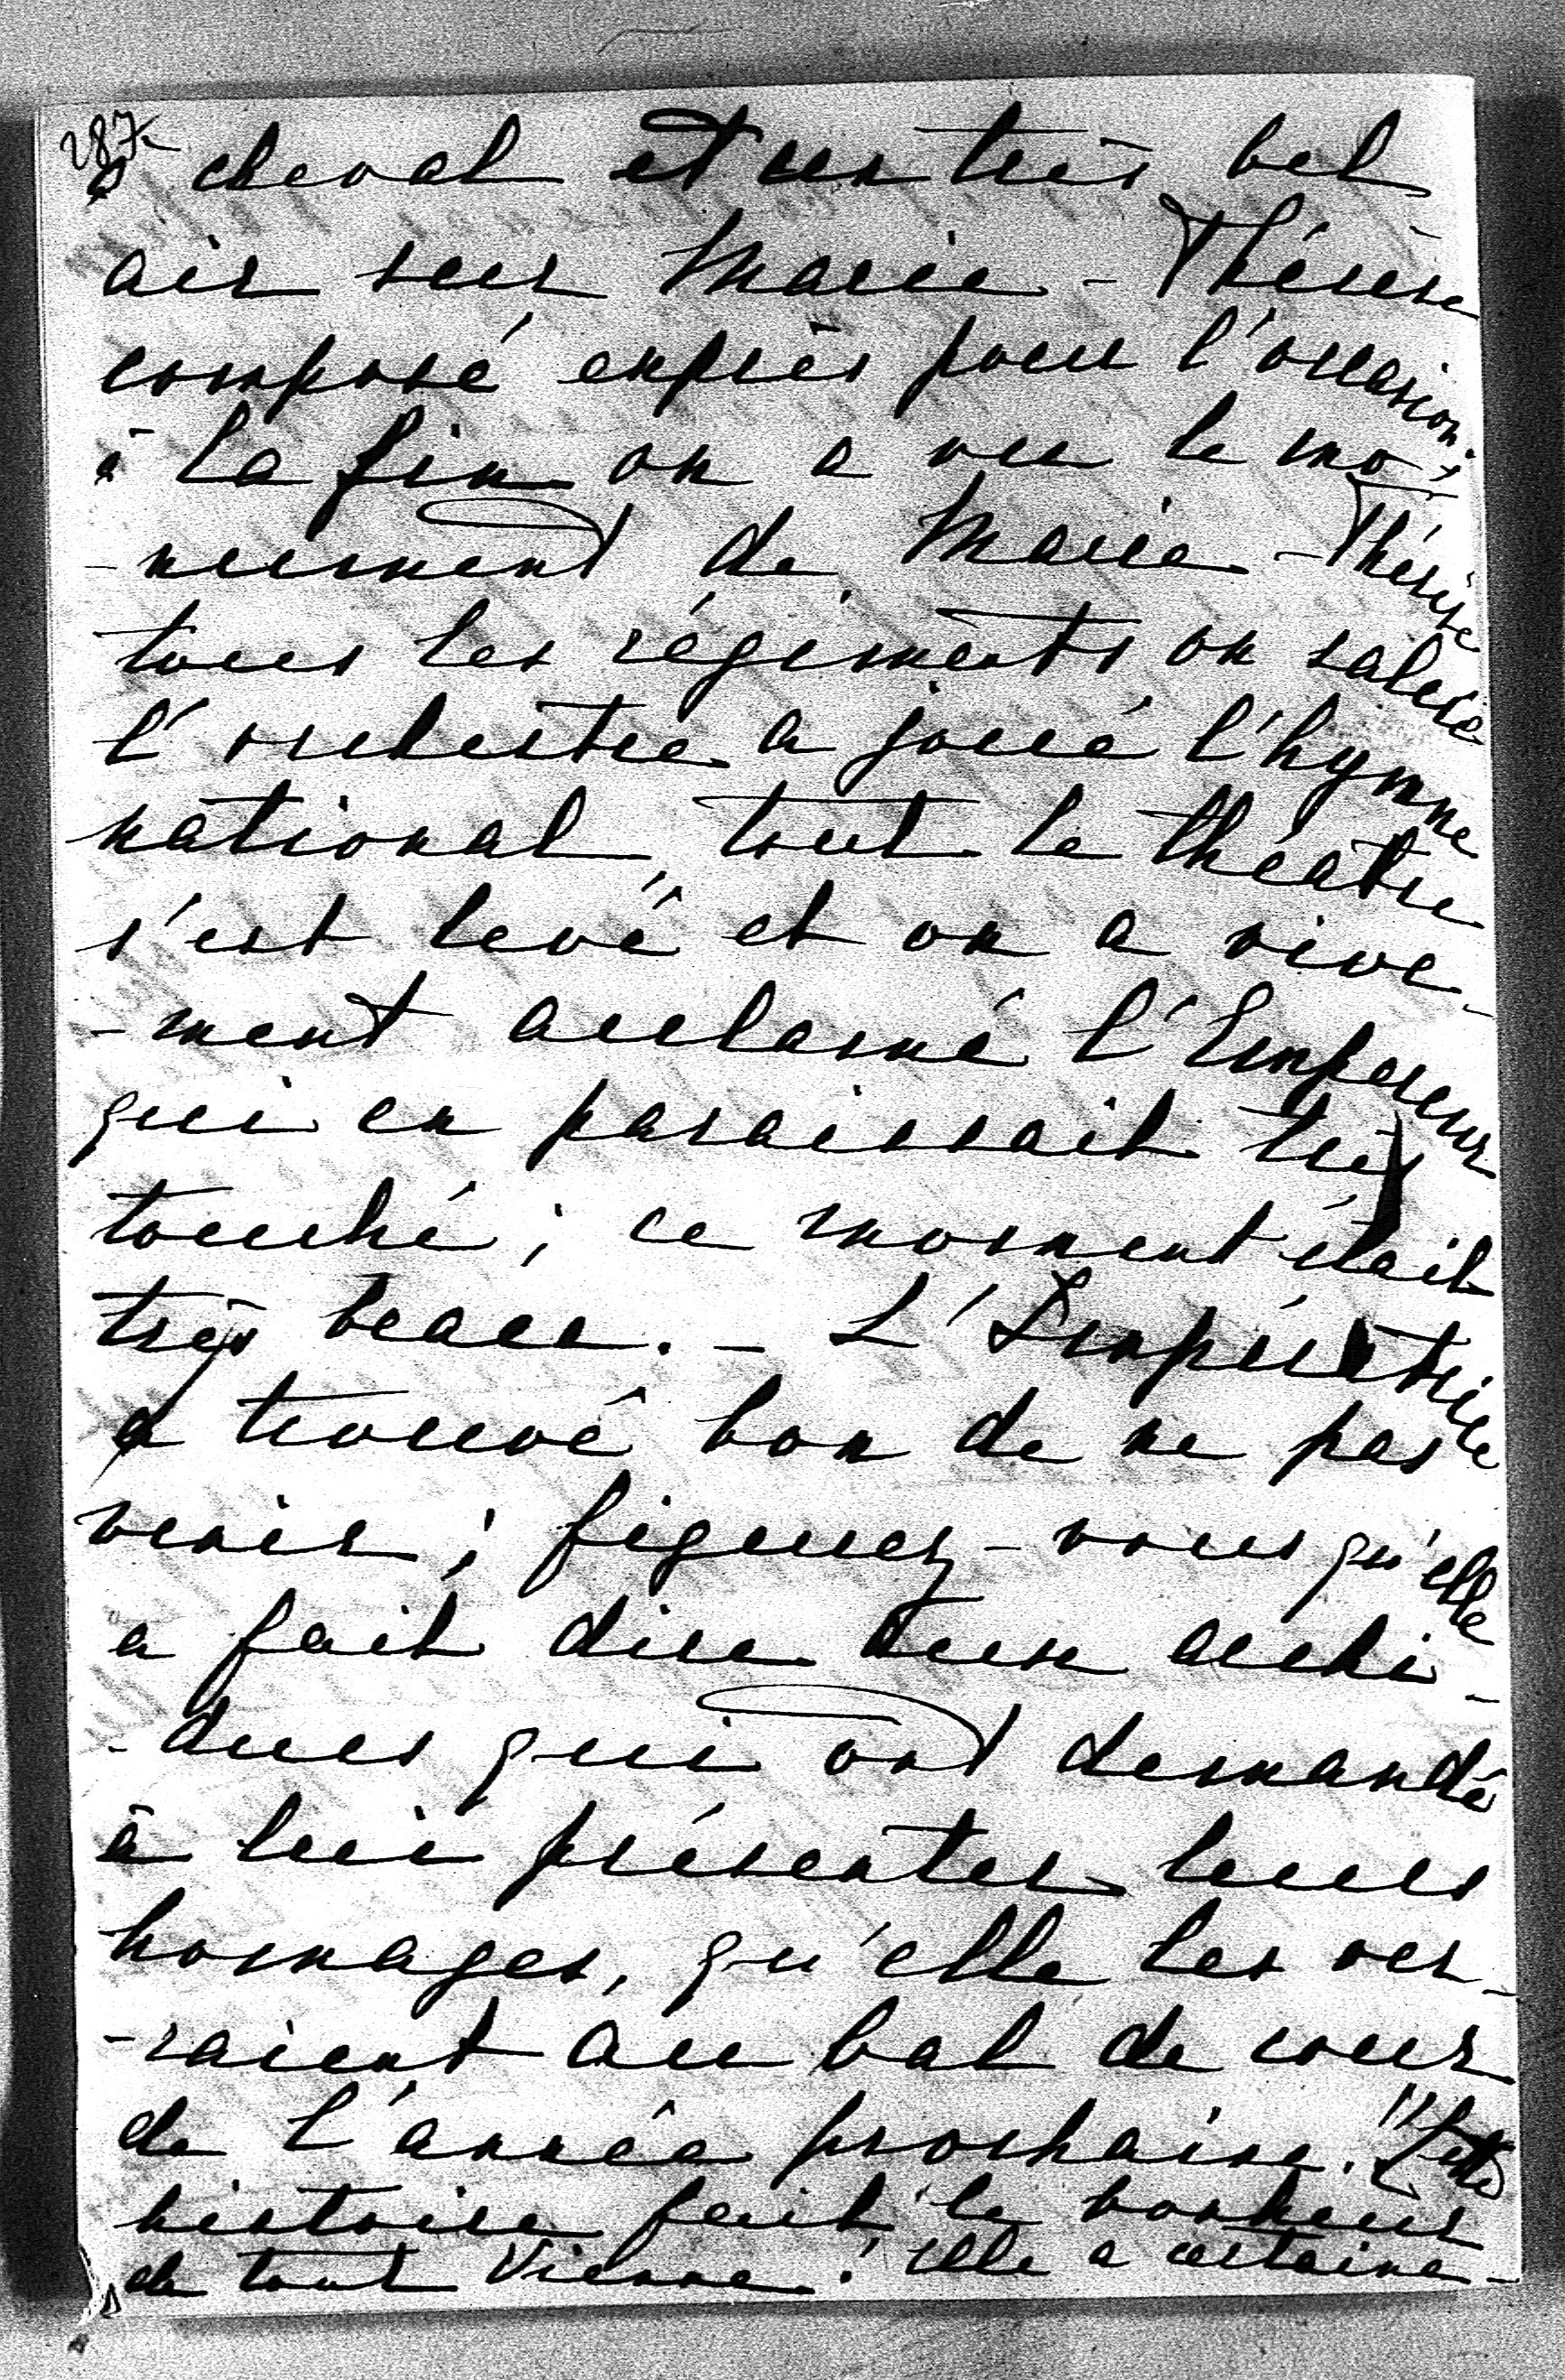 287.
à cheval et un très bel
air sur Marie-Thérèse
composé exprès pour l'occasion;
à la fin on a vu le mo-
-nument de Marie-Thérèse
tous les régiments on salué
l'orchestre a joué l'hymne
national, tout le théatre
s'est levé et on a vive-
-ment acclamé l'Empereur
qui en paraissait très
touché; ce moment était
très beau. - L'Impératrice
a trouvé bon de ne pas
venir; figurez-vous qu'elle
a fait dire aux archi-
-ducs qui ont demandé
à lui présenter leurs
homages, qu'elle les ver-
-raient au bal de cour
de l'année prochaine!! Cette
histoire fait le bonheur
de tout Vienne! elle a certaine-